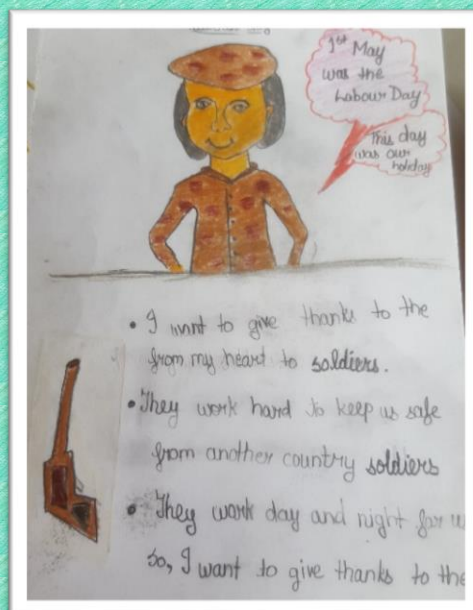 1st May
was the
Labour Day
This day
was our
holiday
• I want to give thanks to the
from my heard to soldiers.
• They work hard to keep us safe
from another country soldiers
• They work day and night for u
so, I want to give thanks to the